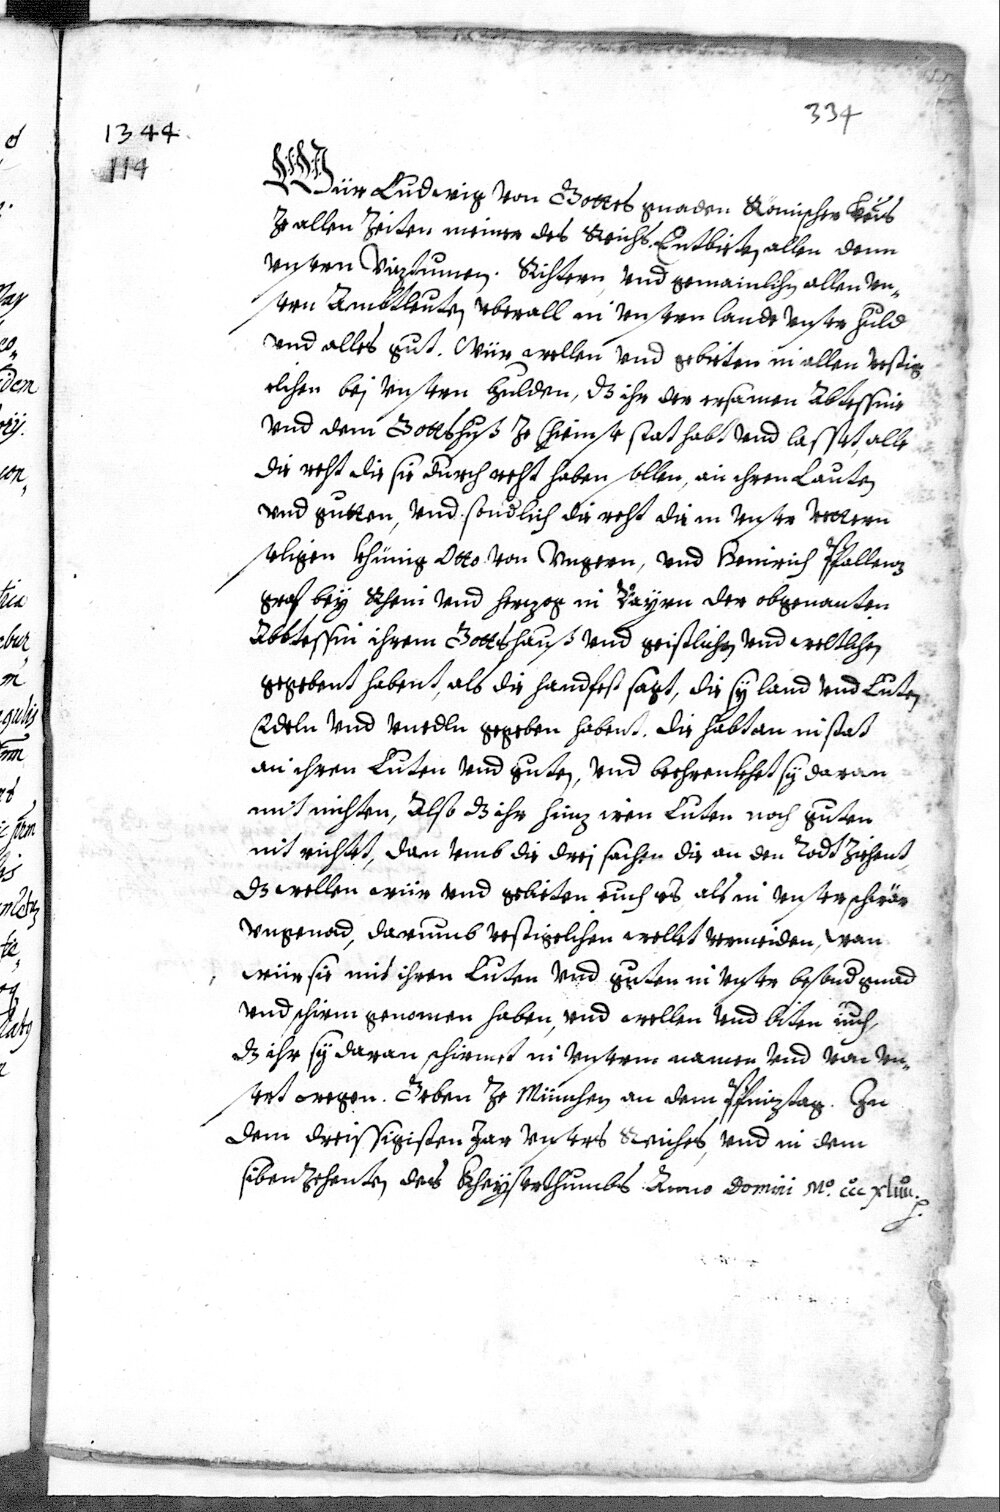 334
1344
114
Wür Ludwig von Gottes gnaden Römischer Keÿs
Ze allen Zeiten merer des Reichs. Entbieten allen denn
Vnsern Viztumen. Richtern, Vnd gemainlichen allen vn-
sern Ambtleuten vberall in Vnsern lande Vnser huld
vnd alles gut. Wür wellen vnd gebieten in allen vestig
elichen bei Vnsern Hulden, dz ihr der ersamen Äbtessin
Vnd dem Gottshuß Ze Chiemse stat habt Vnd lasset alle
die reht die sie durch reht haben sollen, an ihren Leuten
vnd gutten, Vnd sondlich die reht die in Vnser Vettern
seligen Khünig Otto Von Vngern, vnd Heinrich Pfallenz
graf beÿ Rhein Vnd herzog in Baÿrn der obgenanten
Äbbtessin ihrem Gottshauß vnd geistlichen vnd weltlichen
gegebent habent, als die handfest sagt, die sÿ land Vnd Luten
Edeln Vnd vnedln gegeben habent. die habt an in stat
an ihren Luten Vnd guten, Vnd bechrenkhet sÿ daran
mit nichten, Also dz ihr hinz iren Luten noch guten
nit richtet, dan vmb die drei sachen die an den Todt Ziehent,
dz wellen wür vnd gebieten euch es als in Vnser schwär
vngenad, darumb vestigelichen wellet vermeiden, wan
wür sie mit ihren Luten Vnd guten in Vnser besond gnad
vnd schirm genomen haben, vnd wellen Vnd biten iuch,
dz ihr sÿ daran schirmet in Vnserm namen Vnd von vn-
sert wegen. Geben Ze München an dem Pfinztag. In
dem dreissigisten Jar Vnsers Reiches, Vnd in dem
sibenzehenten des Kheÿserthumbs Anno Domini Mº. ccc xliiii.